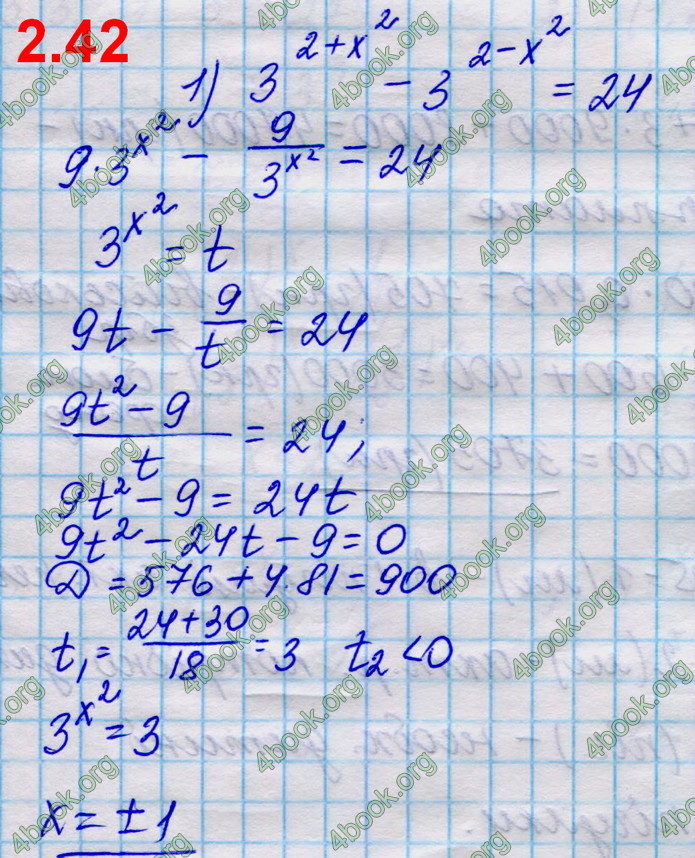 2.42
1) 3^{2+x^2} - 3^{2-x^2} = 24
9·3^{x^2} - \frac{9}{3^{x^2}} = 24
3^{x^2} = t
9t - \frac{9}{t} = 24
\frac{9t^2-9}{t} = 24;
9t^2 - 9 = 24t
9t^2 - 24t - 9 = 0
D = 576 + 4·81 = 900
t_1 = \frac{24+30}{18} = 3 t_2 < 0
3^{x^2} = 3
x = ±1
4book.org